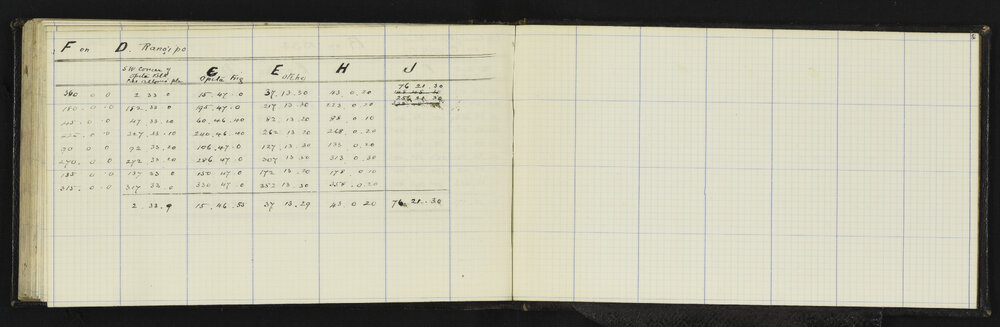 F on D. Rangipo
SW Corner of
Opita Blk
E H J
Opita Trig
76 21 30
360 0 0 2 33 0 15.47.0 37.13.30 43.0.20
180.0.0 182.33.0 195.47.0 217 13.30 223 0.20
45.0.0 47 33.20 60.46.40 82 13.20 88 0 10
227.33.10 240.46.40 262 13.20 268.0.20
90 0 0 92 33.20 106.47.0 127.13.30 133 0.20
270.0 0 272 33.20 286 47.0 307 13 30 313 0.30
135 0 0 137 33 0 150 47.0 172 13.20 178 0 10
315.0.0 317 33 0 330 47.0 352 13.30 358.0.20
2.33.9 15.46.53 37 13.29 43.0.20 76.21.30